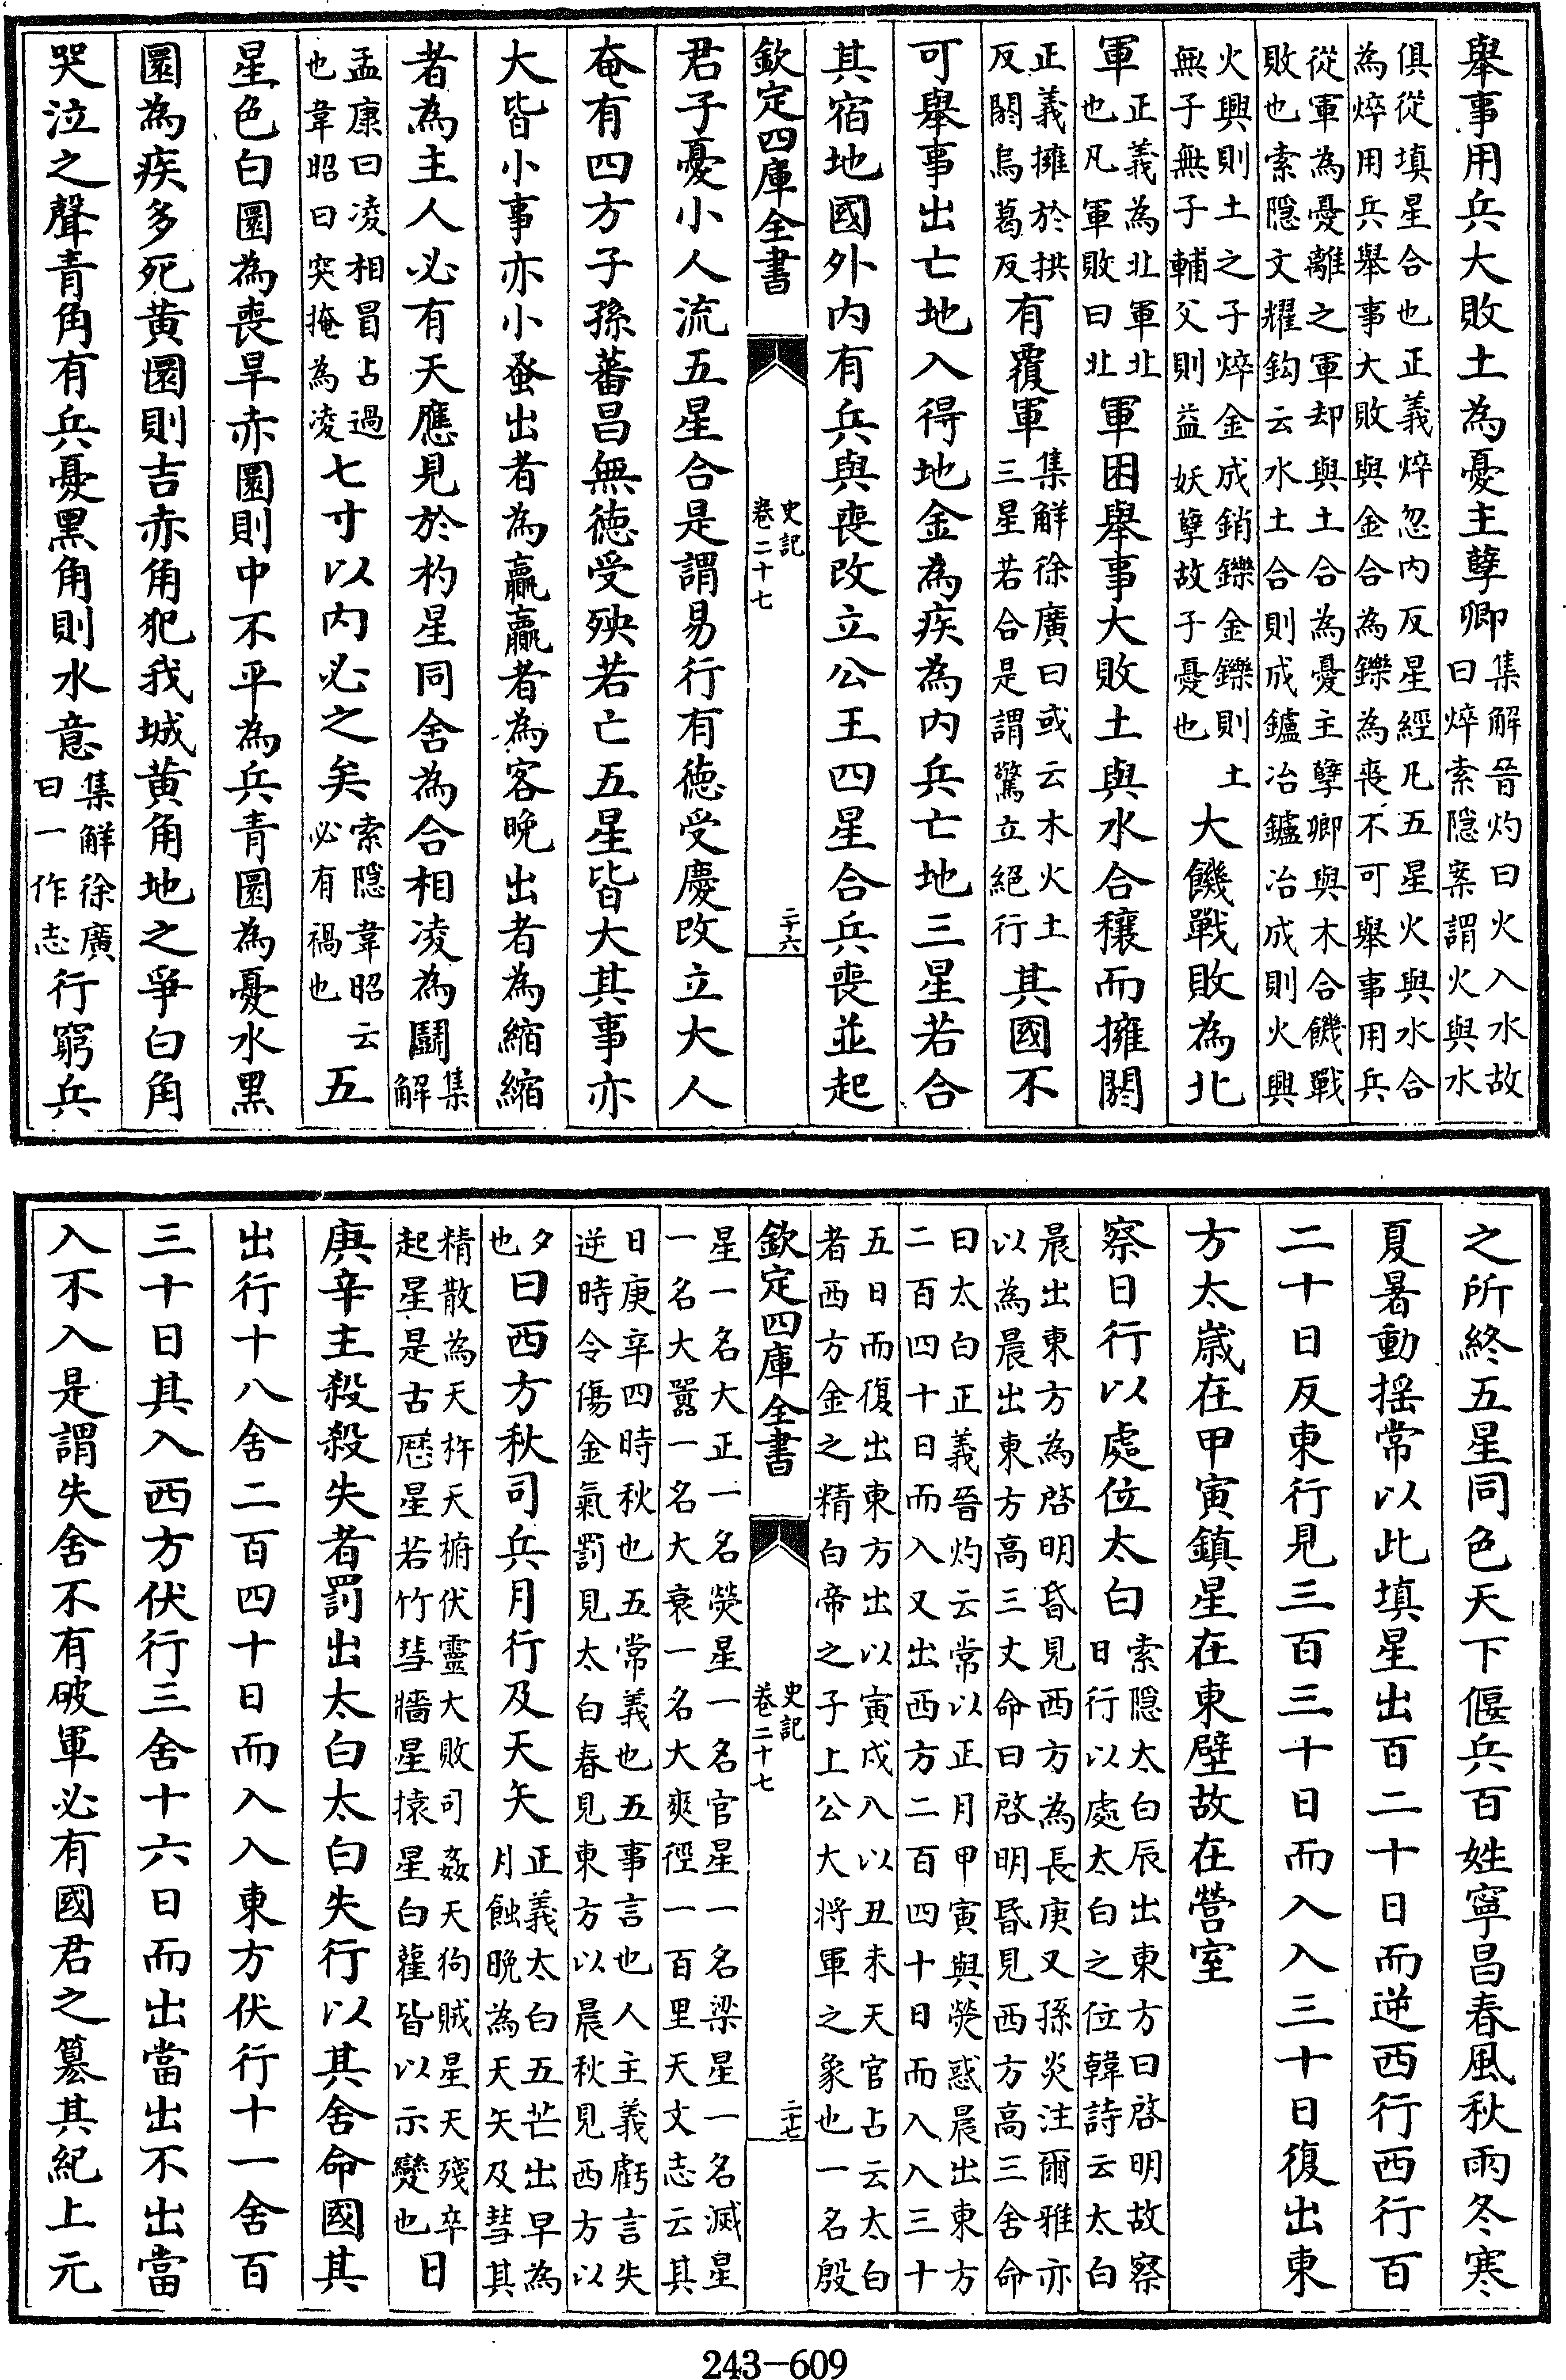 舉事用兵大敗土為憂主孽卿集解晉灼曰火入水故曰焠索隠案謂火與水
俱從填星合也正義焠忽内反星經凡五星火與水合為焠用兵舉事大敗與金合為鑠為喪不可舉事用兵
從軍為憂離之軍却與土合為憂主孽卿與木合饑戰敗也索隠文耀鈎云水土合則成鑪冶鑪冶成則火興
火興則土之子焠金成銷鑠金鑠則土無子無子輔父則益妖孽故子憂也大饑戰敗為北
軍正義為北軍北也凡軍敗曰北軍困舉事大敗土與水合穰而擁閼
正義擁於拱反閼烏葛反有覆軍集解徐廣曰或云木火土三星若合是謂驚立絕行其國不
可舉事出亡地入得地金為疾為内兵亡地三星若合
其宿地國外内有兵與喪改立公王四星合兵喪並起
欽定四庫全書 史記卷二十七 二十六
君子憂小人流五星合是謂易行有德受慶改立大人
奄有四方子孫蕃昌無德受殃若亡五星皆大其事亦
大皆小事亦小蚤出者為贏贏者為客晚出者為縮縮
者為主人必有天應見於杓星同舍為合相凌為鬬集解
孟康曰凌相冒占過也韋昭曰突掩為凌七寸以内必之矣索隠韋昭云必有禍也五
星色白圜為喪旱赤圜則中不平為兵青圜為憂水黑
圜為疾多死黄圜則吉赤角犯我城黄角地之爭白角
哭泣之聲青角有兵憂黑角則水意集解徐廣曰一作志行窮兵
之所終五星同色天下偃兵百姓寧昌春風秋雨冬寒
夏暑動揺常以此填星出百二十日而逆西行西行百
二十日反東行見三百三十日而入入三十日復出東
方太歲在甲寅鎮星在東壁故在營室
察日行以處位太白索隠太白辰出東方曰啓明故察日行以處太白之位韓詩云太白
晨出東方為啓明昏見西方為長庚又孫炎注爾雅亦以為晨出東方高三丈命曰啓明昬見西方高三舍命
曰太白正義晉灼云常以正月甲寅與熒惑晨出東方二百四十日而入又出西方二百四十日而入入三十
五日而復出東方出以寅戌入以丑未天官占云太白者西方金之精白帝之子上公大將軍之象也一名殷
欽定四庫全書 史記卷二十七 二十七
星一名大正一名熒星一名官星一名梁星一名滅星一名大嚣一名大衰一名大爽徑一百里天文志云其
日庚辛四時秋也五常義也五事言也人主義虧言失逆時令傷金氣罰見太白春見東方以晨秋見西方以
夕也曰西方秋司兵月行及天矢正義太白五芒出早為月蝕晚為天矢及彗其
精散為天杵天柎伏靈大敗司姦天狗賊星天殘卒起星是古厯星若竹彗牆星猿星白雚皆以示變也日
庚辛主殺殺失者罰出太白太白失行以其舍命國其
出行十八舍二百四十日而入入東方伏行十一舍百
三十日其入西方伏行三舍十六日而出當出不出當
入不入是謂失舍不有破軍必有國君之簒其紀上元
243-609